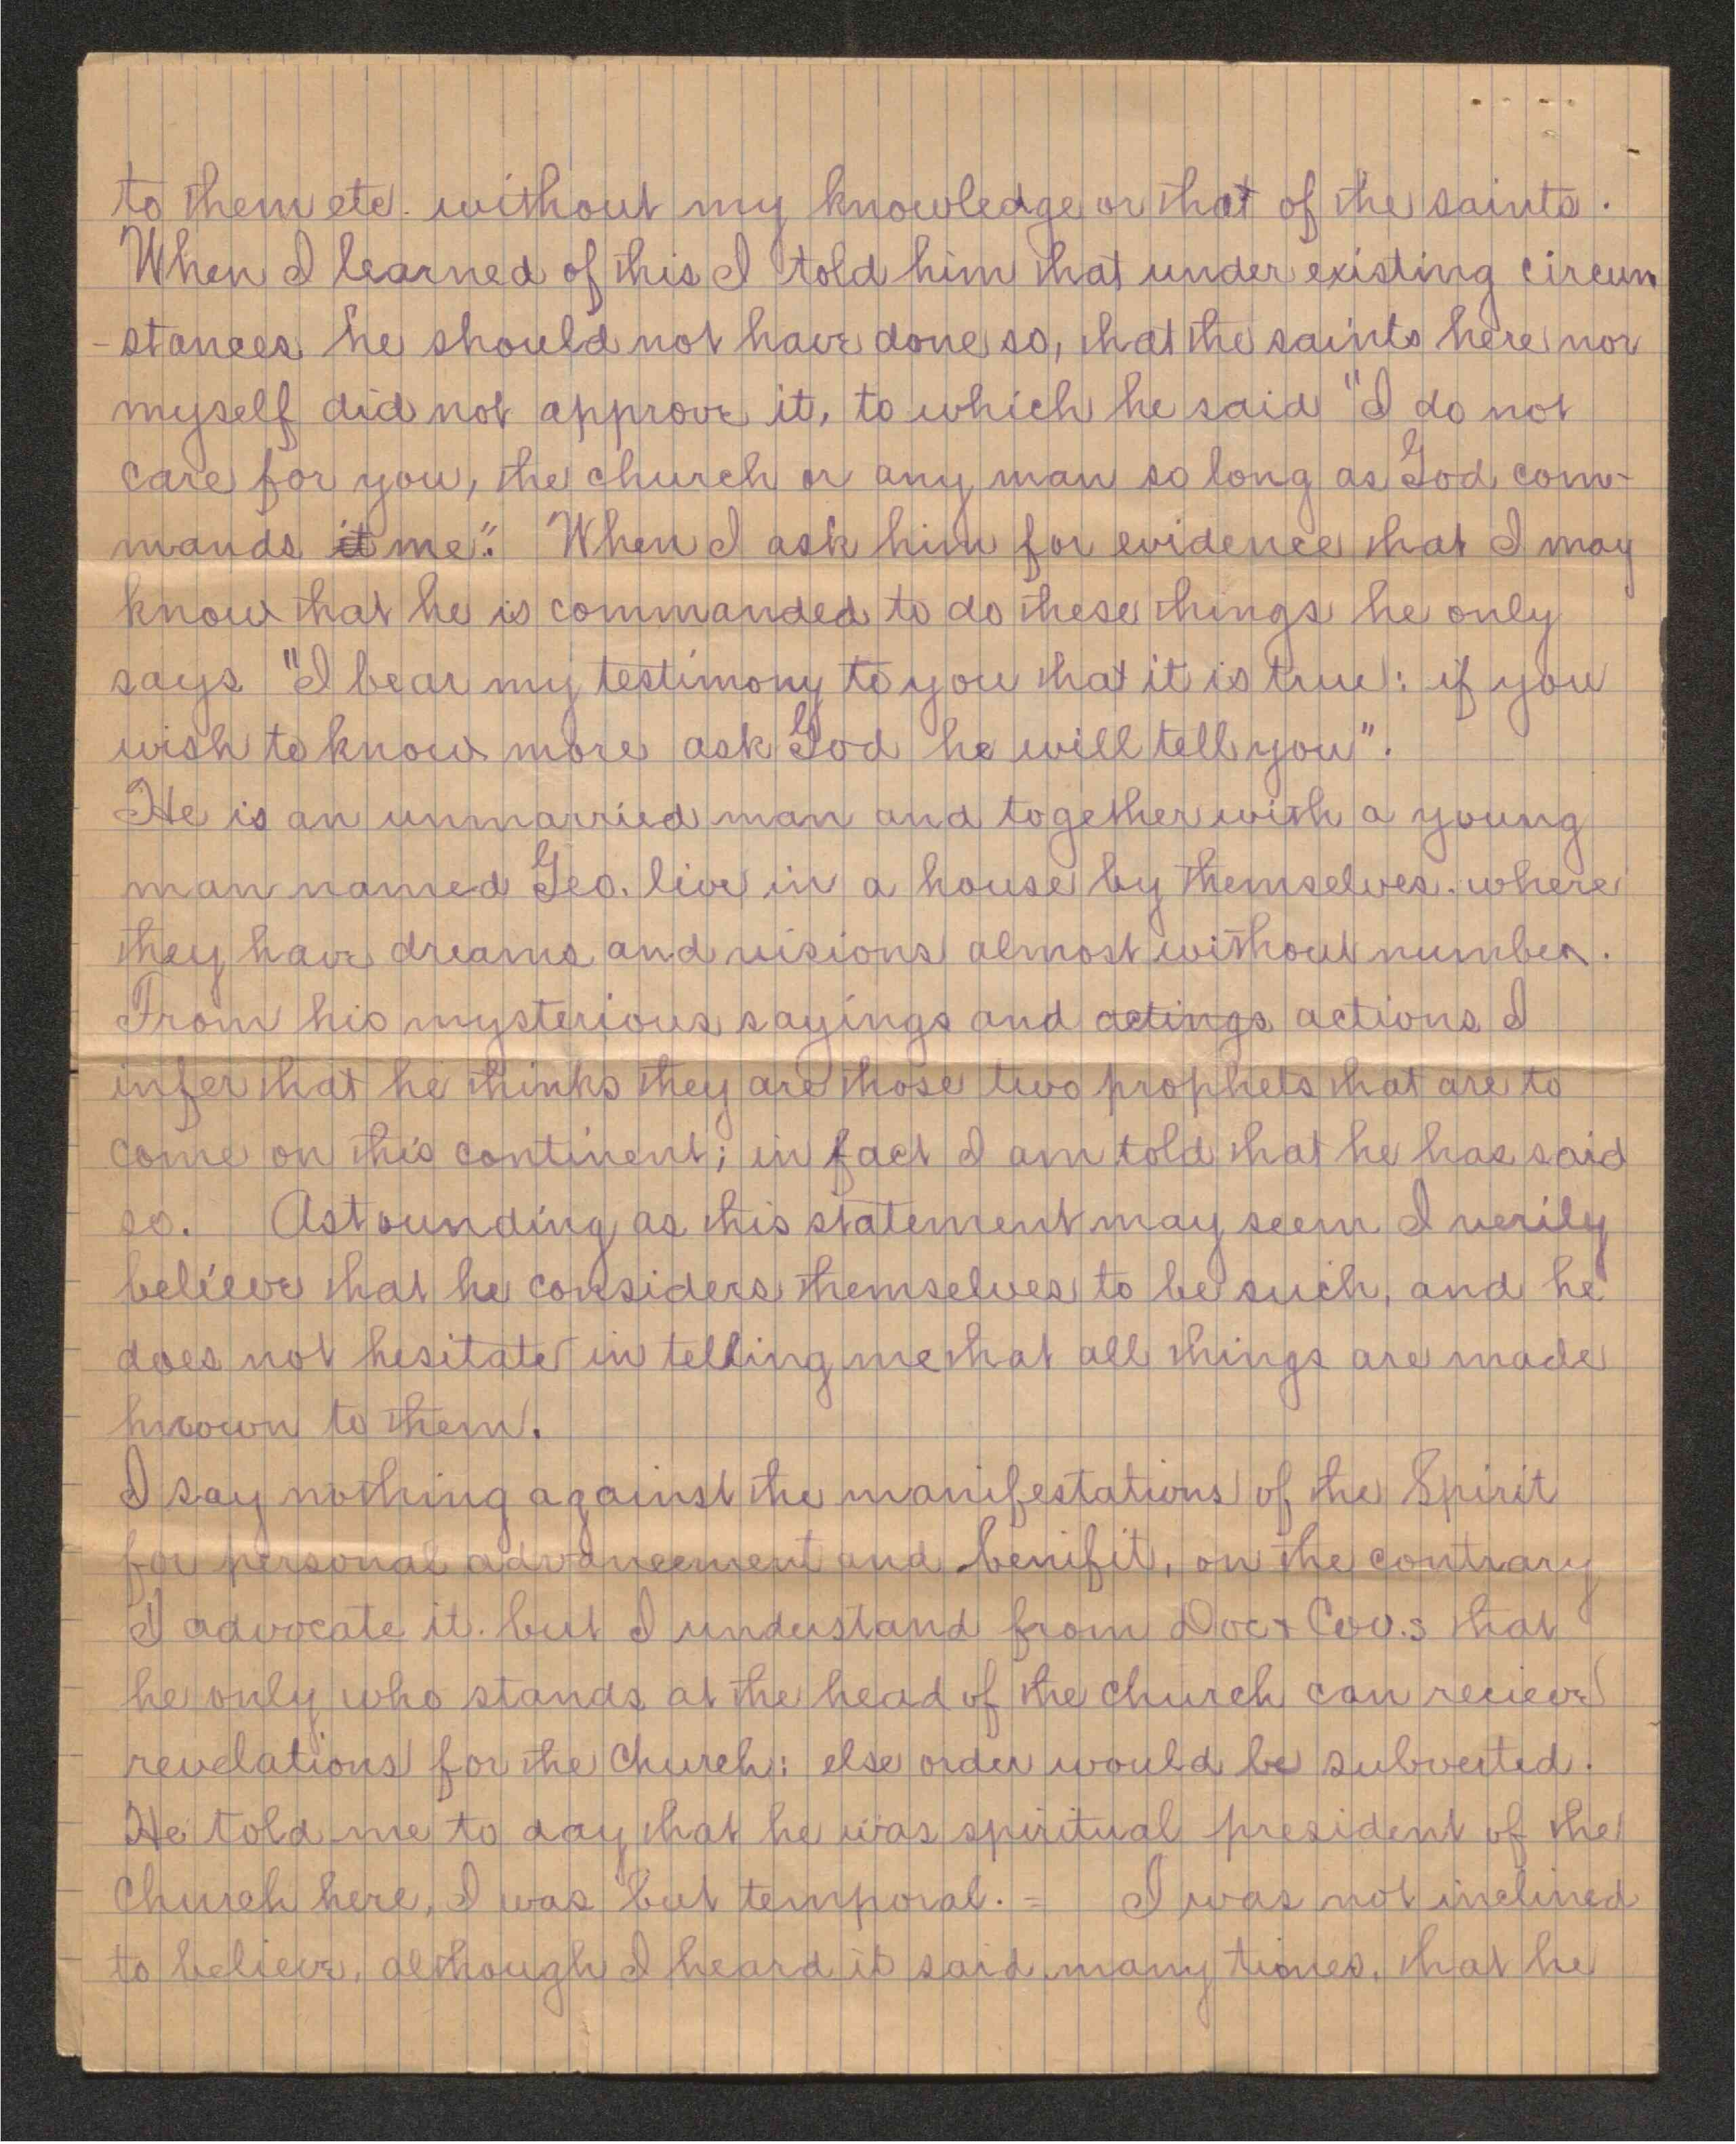 to them etc. without my knowledge or that of the saints.
When I learned of this I told him that under existing circum
-stances he should not have done so, that the saints here nor
myself did not approve it, to which he said "I do not
care for you, the church or any man so long as God com-
mands it me". When I ask him for evidence that I may
know that he is commanded to do these things he only
says "I bear my testimony to you that it is true: if you
wish to know more ask God he will tell you".
He is an unmarried man and together with a young
man named Geo. live in a house by themselves. where
they have dreams and visions almost without number.
From his mysterious sayings and actings actions I
infer that he thinks they are those two prophets that are to
come on this continent; in fact I am told that he has said
so. Astounding as this statement may seem I verily
believe that he considers themselves to be such, and he
does not hesitate in telling me that all things are made
known to them.
I say nothing against the manifestations of the Spirit
for personal advancement and benifit, on the contrary
I advocate it. but I understand from Doc & Cov.s that
he only who stands at the head of the church can recieve
revelations for the Church: else order would be subverted.
He told me to day that he was spiritual president of the
Church here, I was but temporal. = I was not inclined
to believe, although I heard it said many times, that he